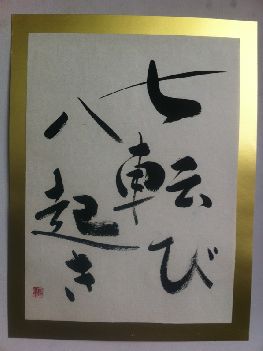 七転び
八起き